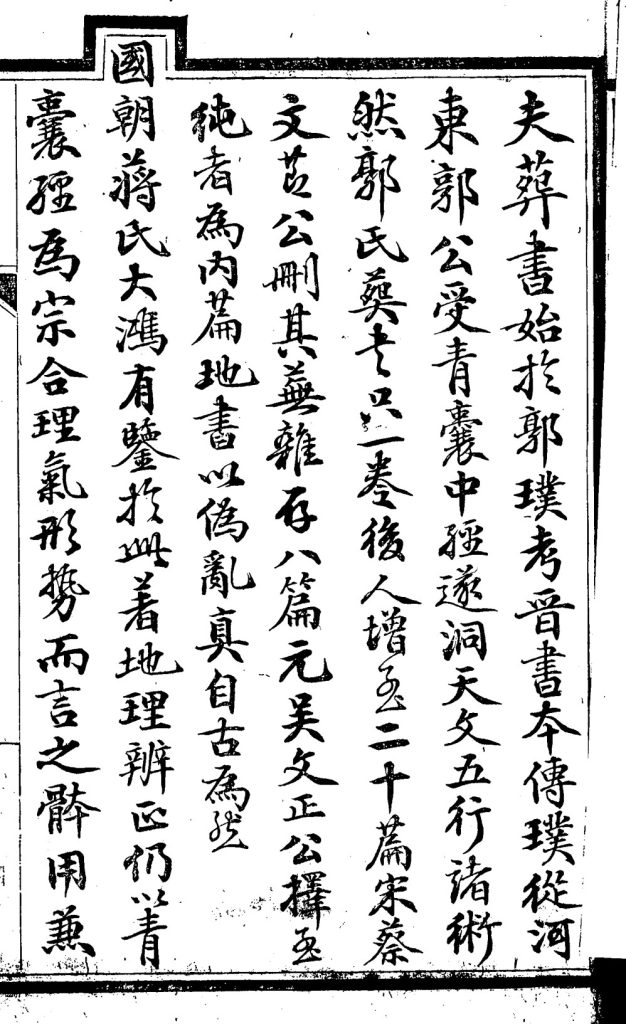 夫葬書始於郭璞考晋書本傳璞從河
東郭公受青囊中經遂洞天文五行諸術
然郭氏葬书只一卷後人增至二十篇宋蔡
文莭公刪其蕪雜存八篇元吴文正公擇至
純者為内篇地書以偽亂真自古為然
國朝蔣氏大鴻有鑒於此著地理辨正仍以青
囊經為宗合理氣形势而言之骵用兼